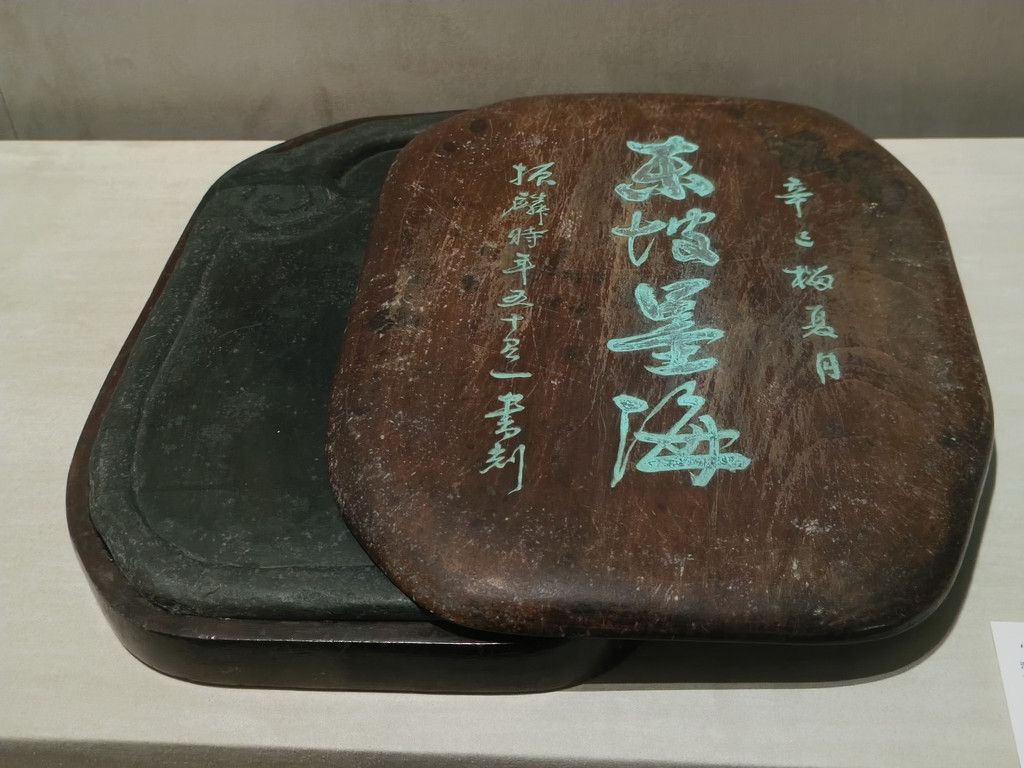 辛巳梅夏月
東坡墨海
振麟時年五十有一書刻